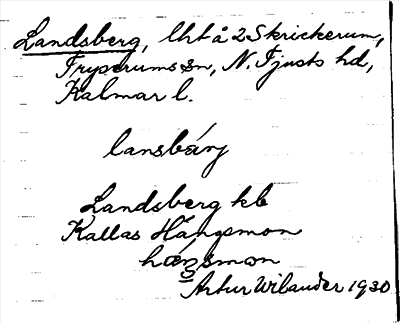 Landsberg, lht å 2 Skrickerum,
Tryserums sn, N. Tjusts hd,
Kalmar l.
lansbärj
Landsberg kb
Kallas Hängsmon
hæŋsmon
Artur Wilander 1930